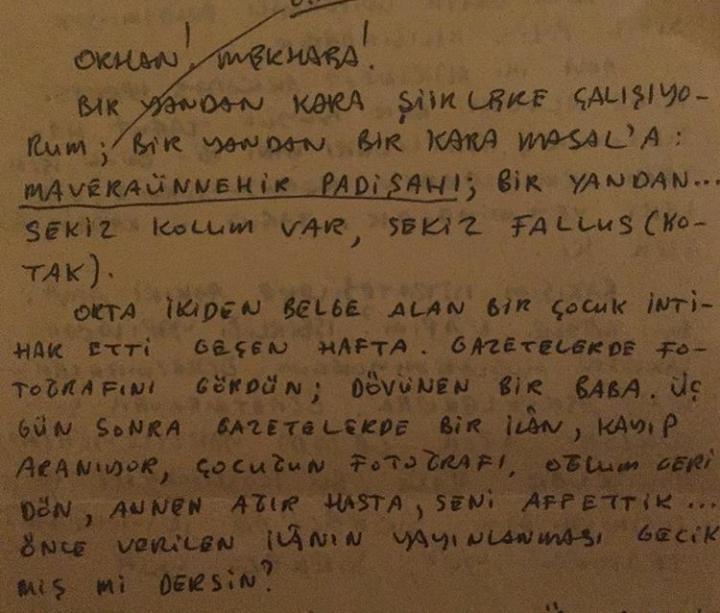 ORHAN! MERHABA!
BİR YANDAN KARA ŞİİRLERE ÇALIŞIYO-
RUM; BİR YANDAN BİR KARA MASAL'A:
MAVERAÜNNEHİR PADİŞAHI; BİR YANDAN...
SEKİZ KOLUM VAR, SEKİZ FALLUS (KO-
TAK).
ORTA İKİDEN BELGE ALAN BİR ÇOCUK İNTİ-
HAR ETTİ GEÇEN HAFTA. GAZETELERDE FO-
TOĞRAFINI GÖRDÜN; DÖVÜNEN BİR BABA. ÜÇ
GÜN SONRA GAZETELERDE BİR İLÂN, KAYIP
ARANIYOR, ÇOCUĞUN FOTOĞRAFI, OĞLUM GERİ
DÖN, ANNEN AĞIR HASTA, SENİ AFFETTİK...
ÖNCE VERİLEN İLÂNIN YAYINLANMASI GECİK
MİŞ Mİ DERSİN?